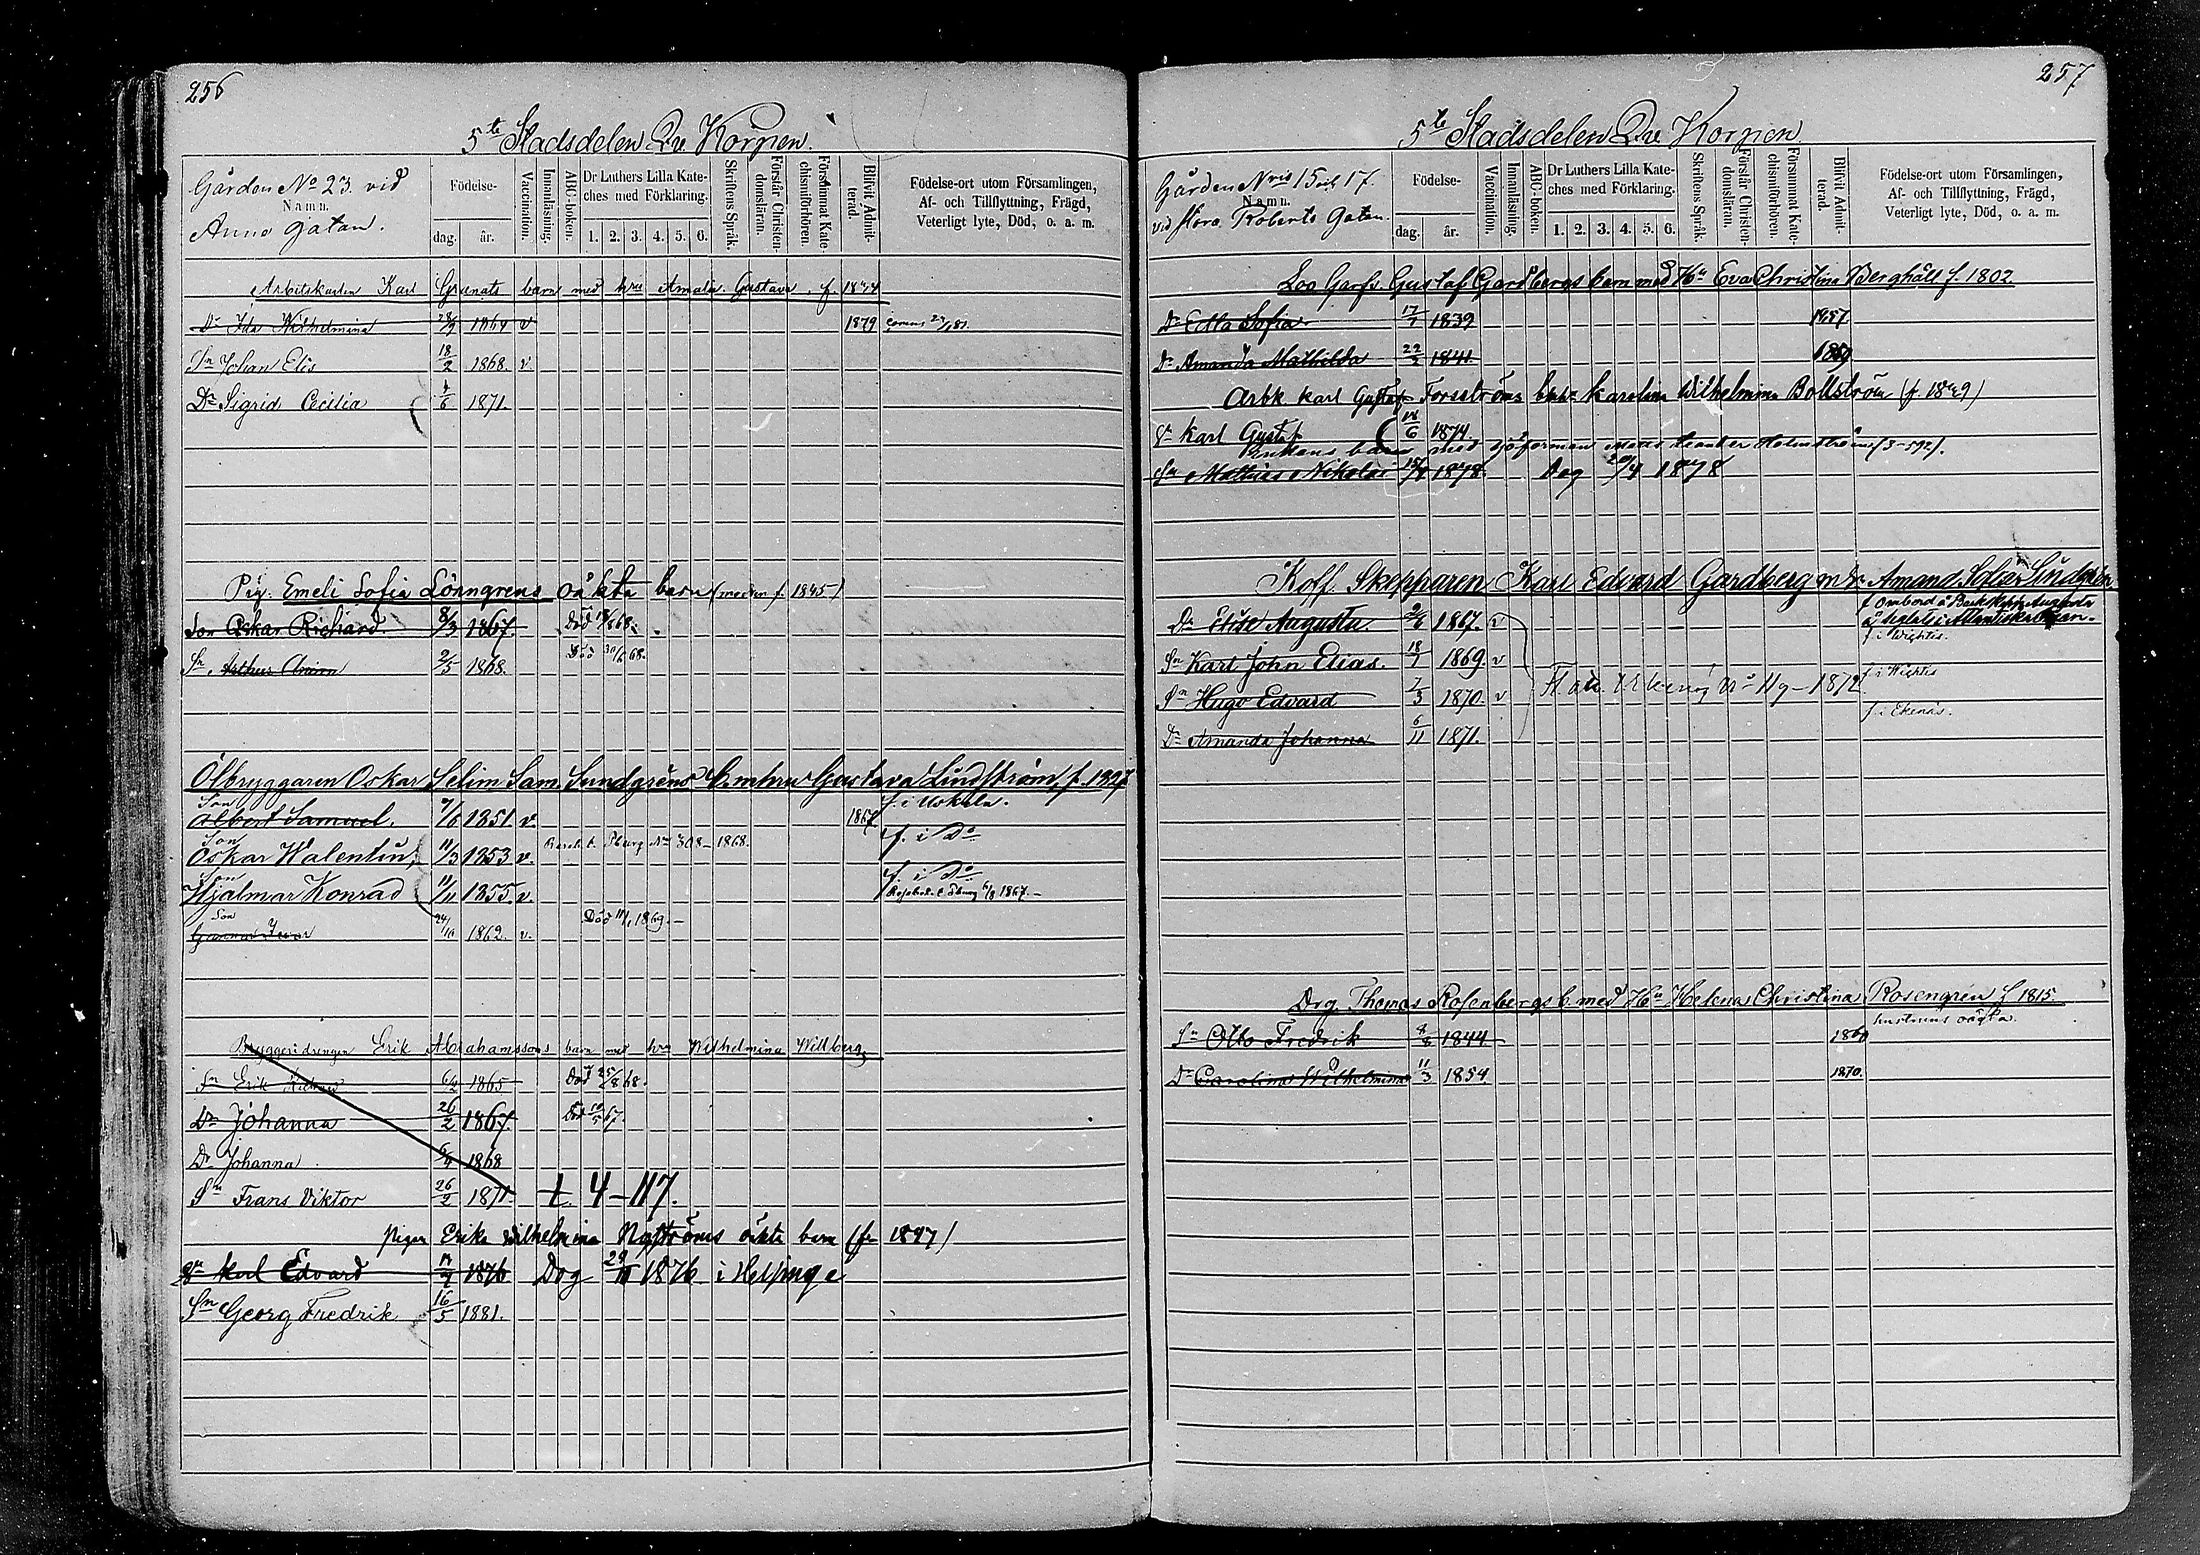 256
5te Stadsdelen Qv. Korpen.
Gården No 23 vid
Namn.
Anno gatan.
Födelse-
dag. år.
Vaccination.
Innanläsning.
ABC-boken.
Dr Luthers Lilla Kate-
ches med Förklaring.
1. 2. 3. 4. 5. 6.
Skriftens Språk.
Förstår Christen-
domsläran.
Försummat Kate-
chismiförhören.
Blifvit Admit-
terad.
Födelse-ort utom Församlingen,
Af- och Tillflyttning, Frägd,
Veterligt lyte, Död, o. a. m.
Arbetskarlen Karl Granats barn med hru Amala Gustava f. 1844
Dr Ida Wilhelmina 28/9 1864 v 1879
Sn Johan Elis 18/2 1868. v.
Dr Sigrid Cecilia 4/6 1871.
Pig. Emeli Sofia Lönngrens oäkta barn (modren f. 1845)
Son Oskar Richard. 8/3 1867. Död
Sn Arthur 2/5 1868. Död 30/6 68.
Ölbryggaren Oskar Selim Sam. Sundgréns b. m. hru Gustava Lindström, f. 1827
Son
Albert Samuel. 7/6 1851 v. 1867 f. i Uskela.
Son
Oskar Walentin, 11/3 1853 v. No 308-1868. f. i Do
Son
Hjalmar Konrad 11/11 1855 v. f. i Do
1867.-
Son
Gunnar Ivar 24/10 1862. v. Död 11/1 1869.-
Bryggeridrengen Erik Abrahamssons barn med hru Wilhelmina Willberg
Sn Erik Rickard 6/12 1865 Död 25/8 68.
Dr Johanna 26/2 1867. Död 10/5 67.
Dr Johanna 6/4 1868
Sn Frans Viktor 26/2 1871 t. 4-117.
pigan Erika Wilhelmina Nyströms oäkta barn (fr 1847)
Sn Karl Edvard 1876 Dog 29/10 1876 i Helsinge
Sn Georg Fredrik 16/5 1881.
257
5te Stadsdelen Qv. Korpen
Gården Nris 15 och 17.
Namn.
vid stora Roberts Gatan.
Födelse-
dag. år.
Vaccination.
Innanläsning.
ABC-boken.
Dr Luthers Lilla Kate-
ches med Förklaring.
1. 2. 3. 4. 5. 6.
Skriftens Språk.
Förstår Christen-
domsläran.
Försummat Kate-
chismiförhören.
Blifvit Admit-
terad.
Födelse-ort utom Församlingen,
Af- och Tillflyttning, Frägd,
Veterligt lyte, Död, o. a. m.
Gustaf Gardbergs barn med Hu Eva Christina Berghäll f. 1802.
Dr Edla Sofia. 17/7 1839 1857
Dr Amanda Mathilda 22/2 1841. 1859
Arbk Karl Gustaf Forsströms Karolina Wilhelmina Bollström (f. 1849)
Sn Karl Gustaf 18/6 1874
Enkans barn med sjöforman Mats Leander Holmström (3-592).
Sn Mattias Nikolai 1878. Dog 20/4 1878
Koff. Skepparen Karl Edvard Gardberg m. hr. Amand. Sofia Lindgrén
Dr Elise Augusta. 1867. v f. ombord å Barkskepp Augusta
å seglats i Atlantiska Ocean.
Sn Karl John Elias. 18/7 1869 v f. i Wichtis.
Sn Hugo Edvard 7/3 1870. v No 119-1872 f. i Wichtis
Dr Amanda Johanna 6/11 1871. f. i Ekenäs.
Drg. Thomas Rosenbergs b. med Hu Helena Christina Rosengrén f. 1815.
hustruns oäkta.
Sn Otto Fredrik 4/8 1844 1860
Dr Carolina Wilhelmina 11/3 1854 1870.